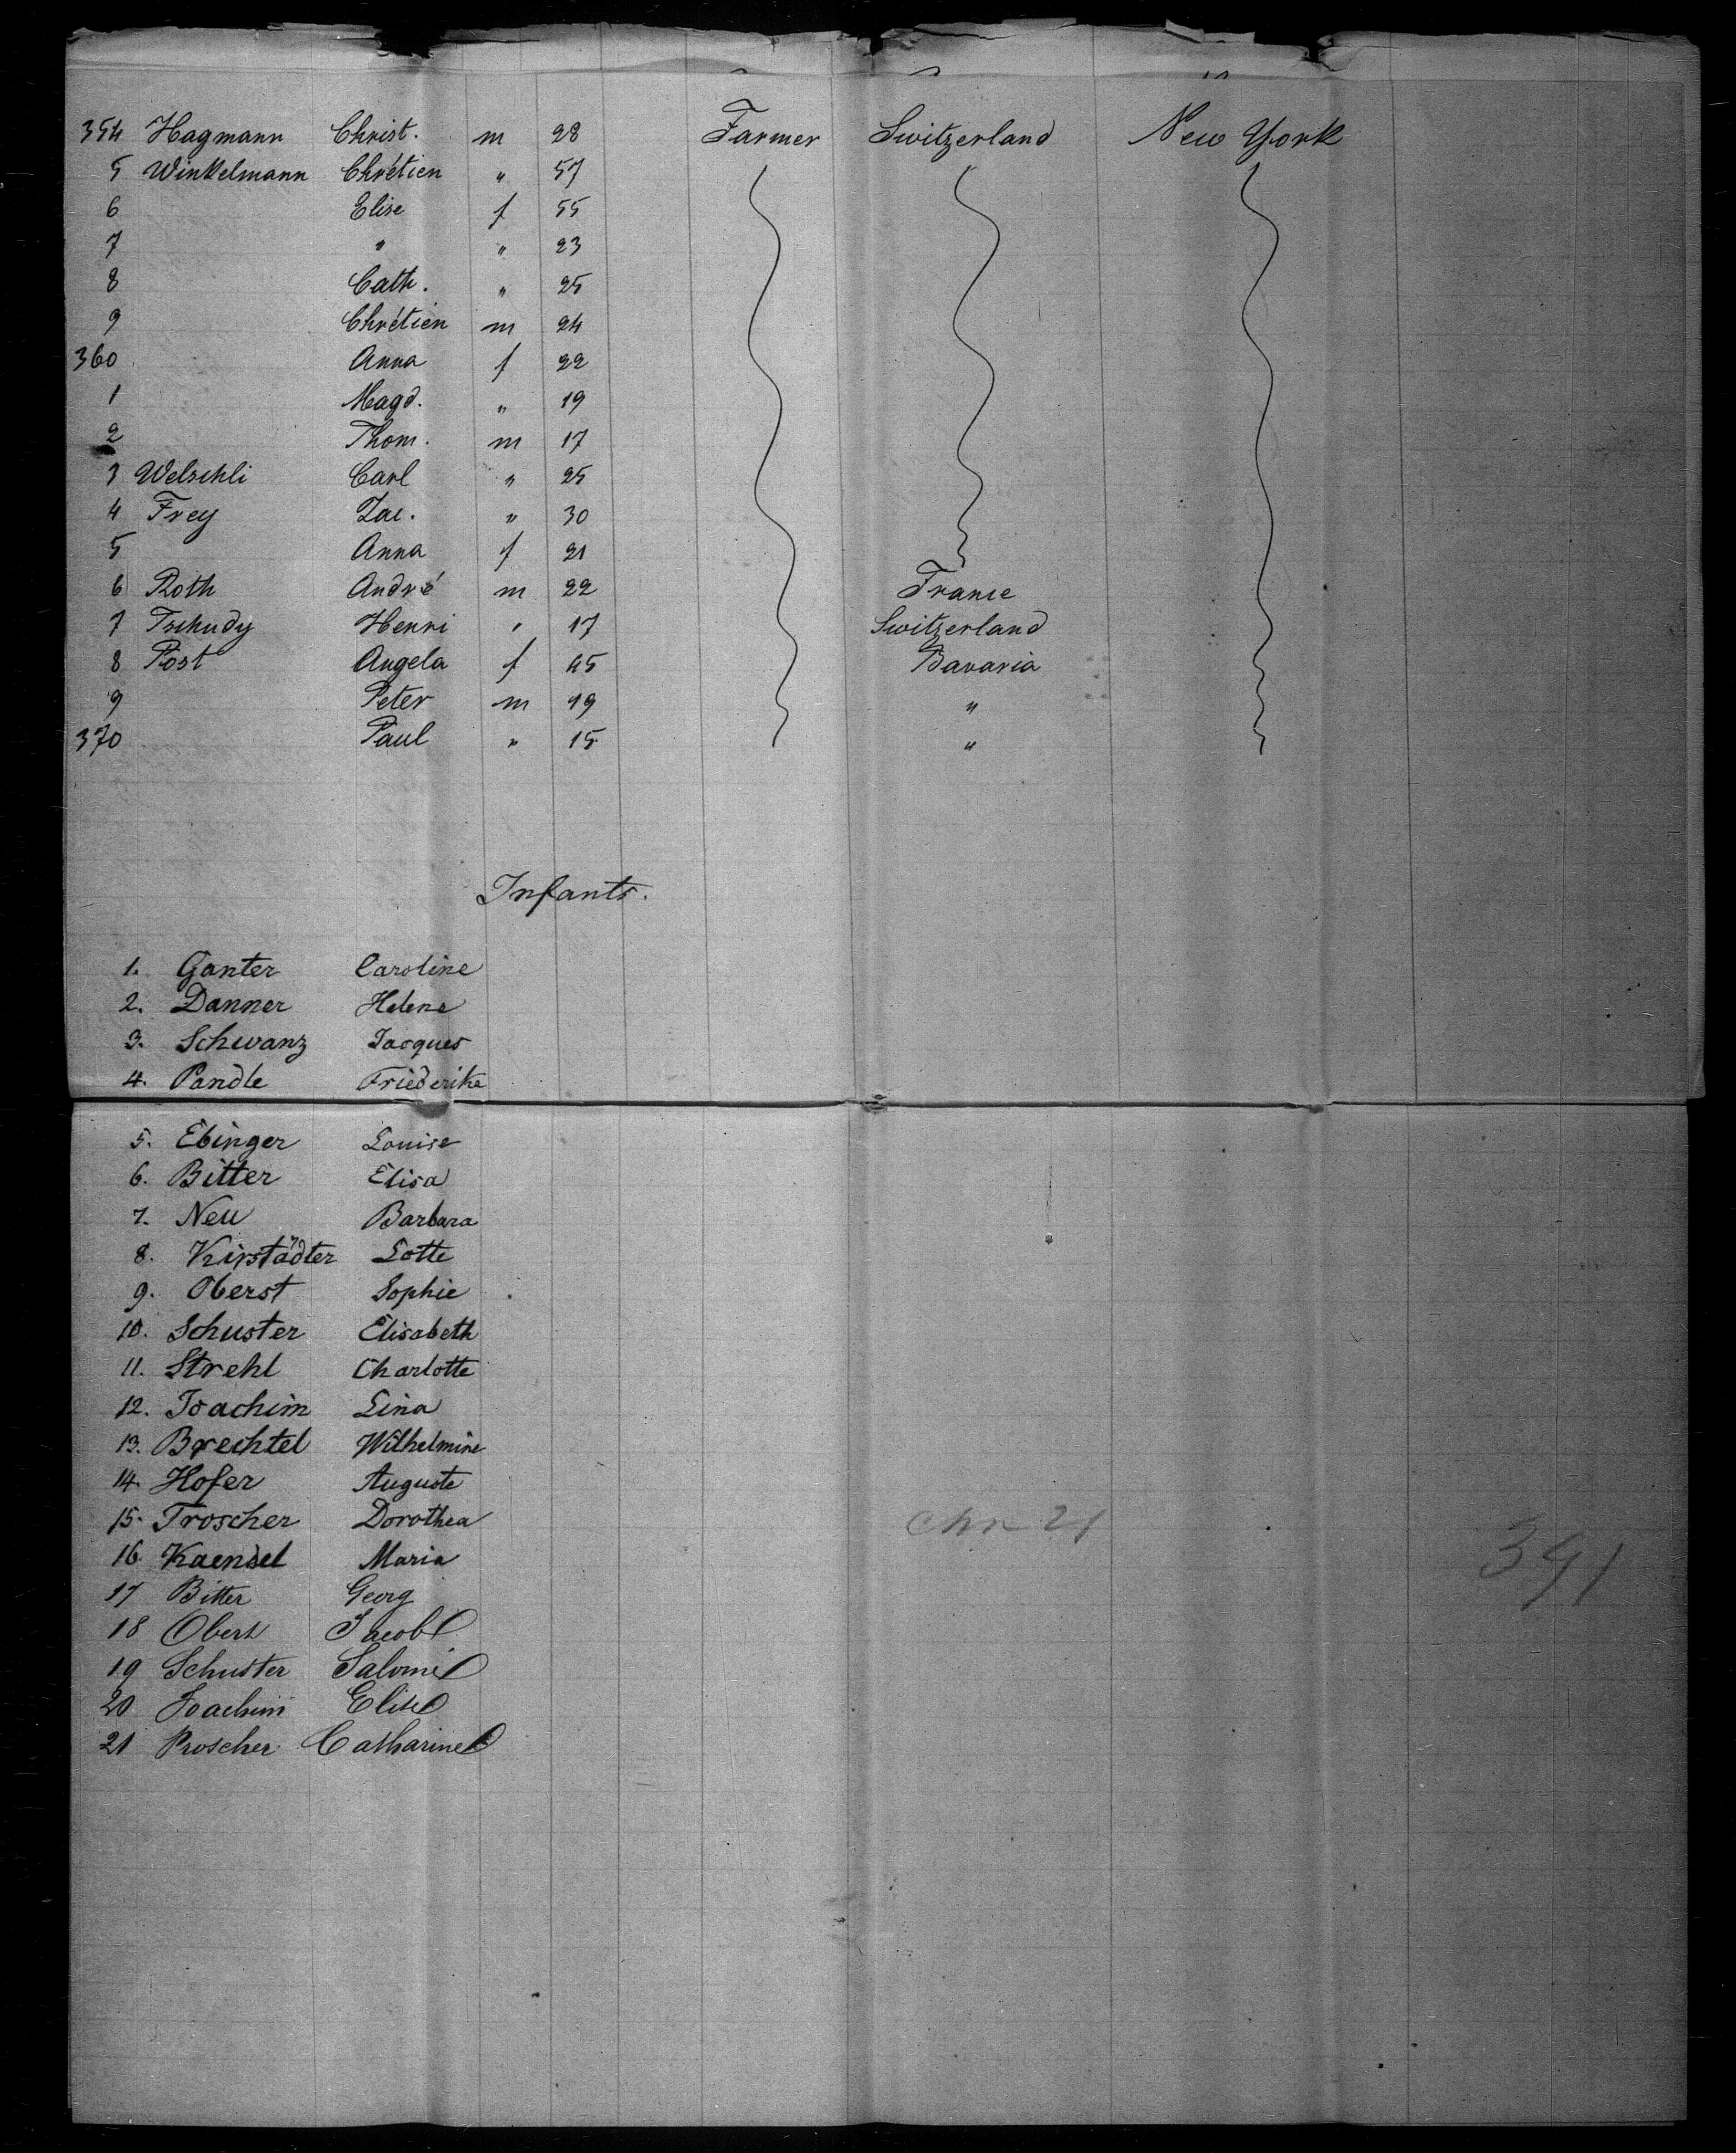 354 Hagmann Christ. m 28 Farmer Switzerland New York
5 Winkelmann Chrétien " 57
6 Elise f 55
7 " " 23
8 Cath. " 25
9 Chrétien m 24
360 Anna f 22
1 Magd. " 19
2 Thom. m 17
3 Welschli Carl " 25
4 Frey Jac. " 30
5 Anna f 21
6 Roth André m 22 France
7 Tschudy Henri " 17 Switzerland
8 Post Angela f 45 Bavaria
9 Peter m 19 "
370 Paul " 15 "
Infants.
1. Ganter Caroline
2. Danner Helene
3. Schwanz Jacques
4. Pandle Friederike
5. Ebinger Louise
6. Bitter Elisa
7. Neu Barbara
8. Kirstädter Lotte
9. Oberst Sophie
10. Schuster Elisabeth
11. Strehl Charlotte
12. Joachim Lina
13. Brechtel Wilhelmine
14. Hofer Auguste
15. Troscher Dorothea
16. Kaendel Maria
17 Bitter Georg
18 Obert Jacob
19 Schuster Salomé
20 Joachim Elise
21 Proscher Catharine
391